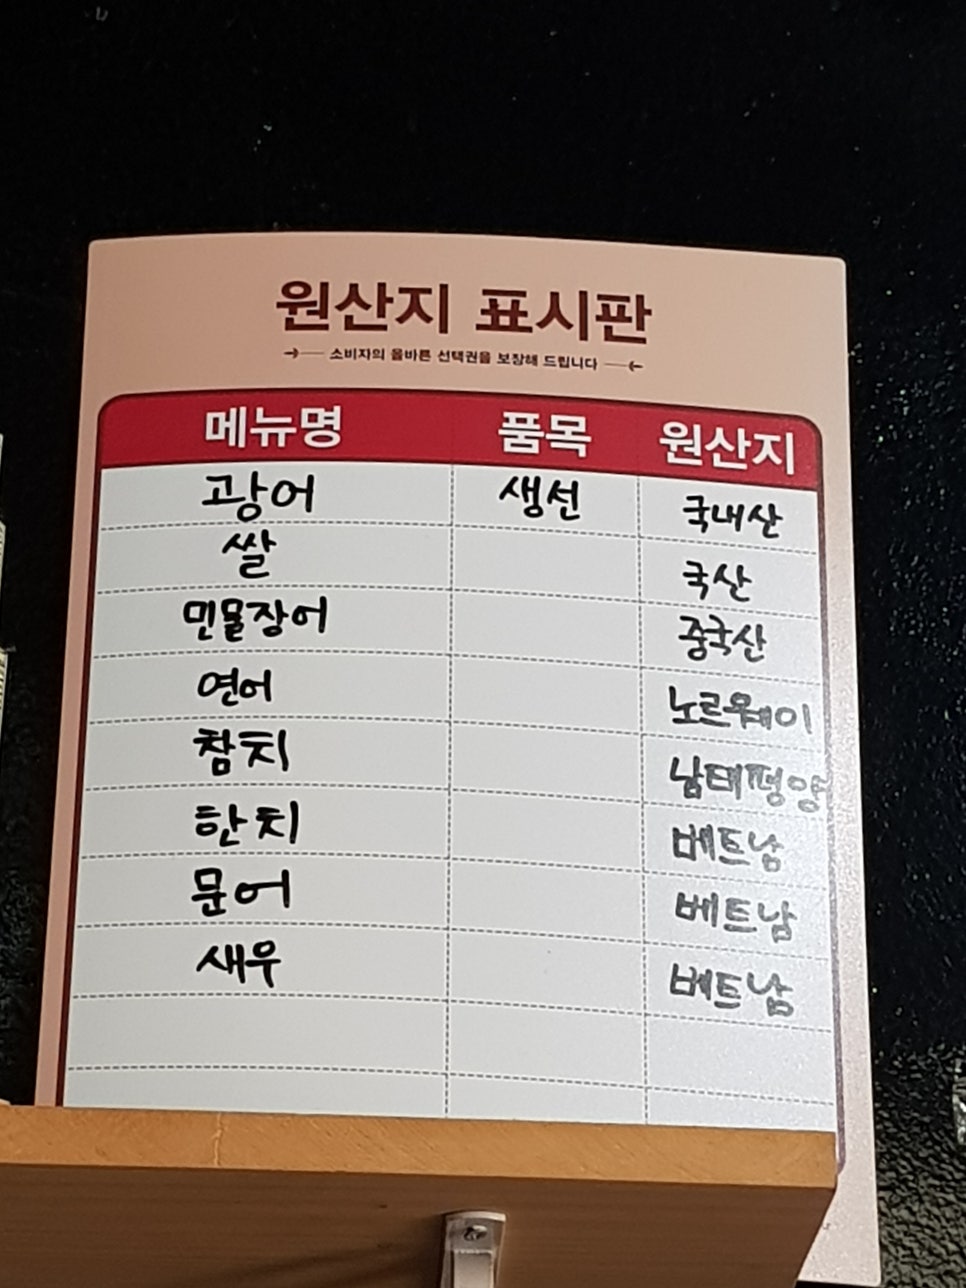 원산지 표시판
소비자의 올바른 선택권을 보장해 드립니다
메뉴명 품목 원산지
광어 생선 국내산
쌀 국산
민물장어 중국산
연어 노르웨이
참치 남태평양
한치 베트남
문어 베트남
새우 베트남